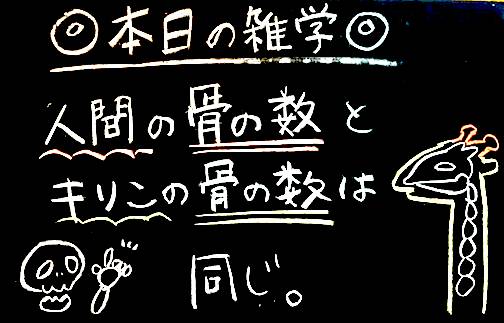 ◎本日の雑学◎
人間の骨の数と
キリンの骨の数は
同じ。